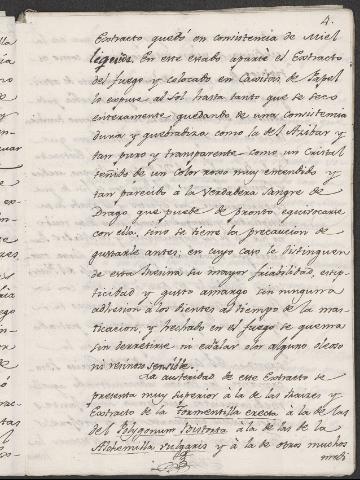 4.
Extracto quedó en consistencia de Miel
ligeña. En este estado aparté el Extracto
del fuego y colocado en Caxitas de Papel
lo expuse al Sol hasta tanto que se seco
enteramente quedando de una consistencia
dura y quebradiza como la del Azibar y
tan puro y transparente como un Cristal
teñido de un color roxo muy encendido y
tan parecido à la verdadera Sangre de
Drago que puede de pronto equivocarse
con ella, sino se tiene la precaucion de
gustarle antes; en cuyo caso le distinguen
de esta Resina su mayor friabilidad, estip-
ticidad y gusto amargo sin ninguna
adhesion à los dientes al tiempo de la mas-
ticacion, y hechado en el fuego se quema
sin derretirse ni exâlar olor alguno oleoso
no resinoso sensible.
La austeridad de este Extracto se
presenta muy superior à la de las Raizes y
Extracto de la Tormentilla erecta à la de las
del Polygonum Bistorta à la de las de la
Alchemilla vulgaris y à la de otros muchos